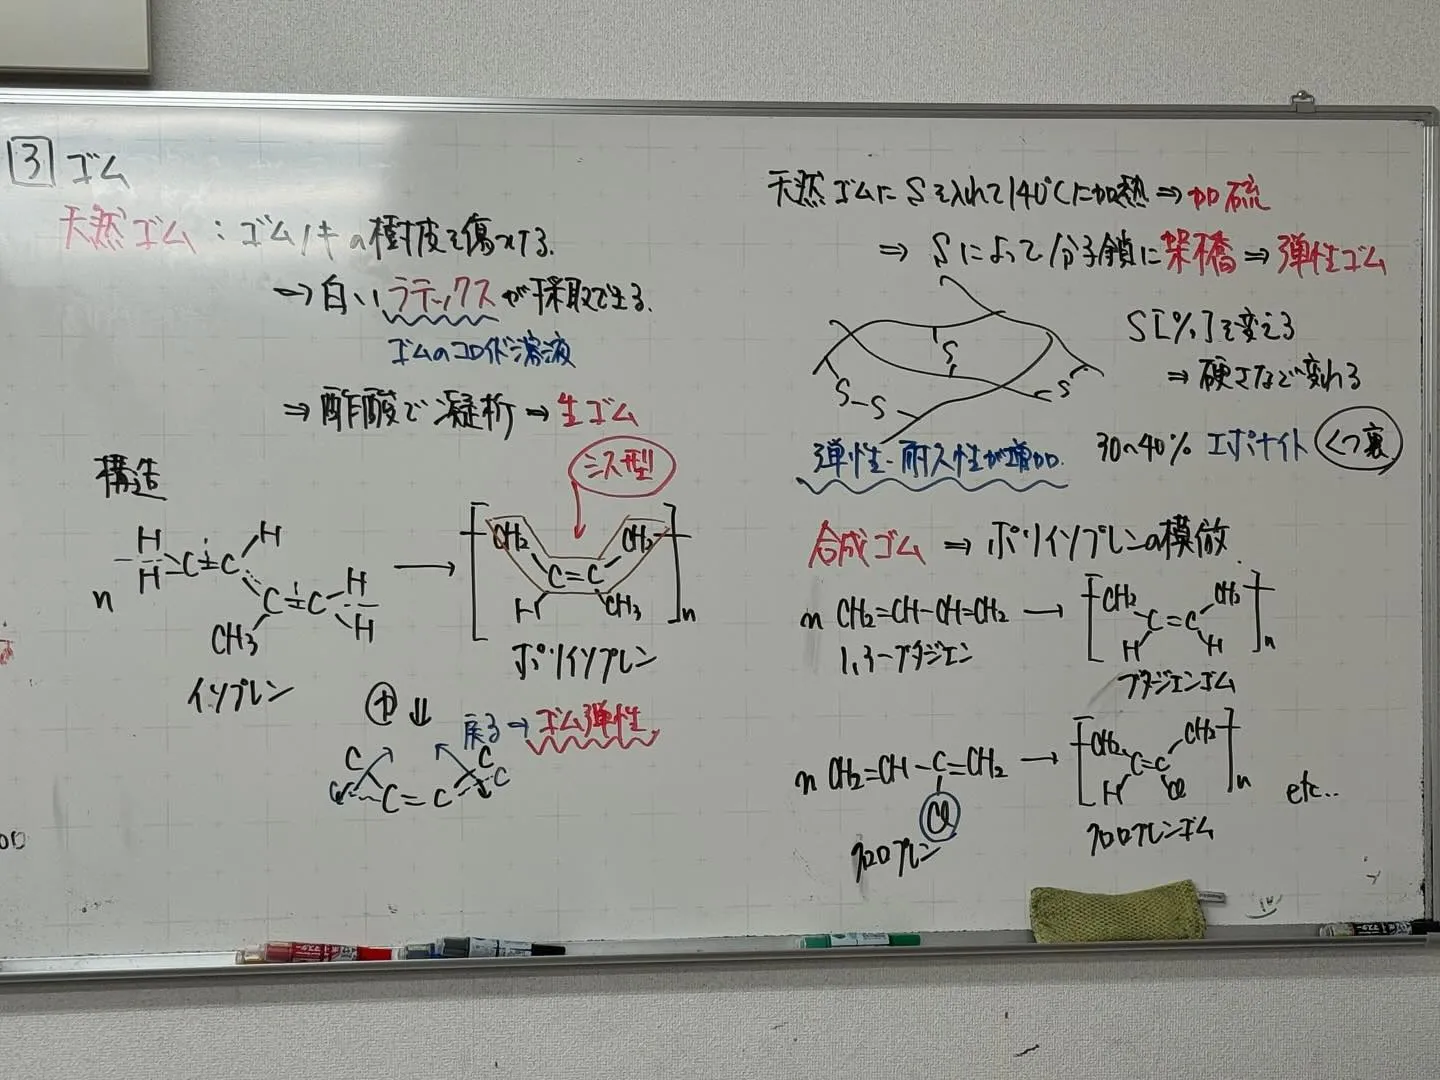 3 ゴム
天然ゴム：ゴムノキの樹皮を傷つける.
⇒白いラテックスが採取できる.
ゴムのコロイド溶液
⇒酢酸で凝析⇒生ゴム
構造
シス型
n
H
H
C
C
H
C
C
H
H
CH3
イソプレン
CH2
CH2
C=C
H
CH3
n
ポリイソプレン
戻る→ゴム弾性
C
C
C
C
C=C
天然ゴムにSを入れて140℃に加熱⇒加硫
⇒Sによって分子鎖に架橋⇒弾性ゴム
S
S
S-S
S[%]を変える
⇒硬さなど変わる
弾性・耐久性が増加.
30~40% エボナイト くつ裏
合成ゴム⇒ポリイソプレンの模倣
n CH2=CH-CH=CH2
1,3-ブタジエン
CH2
CH2
C=C
H
H
n
ブタジエンゴム
n CH2=CH-C=CH2
Cl
クロロプレン
CH2
CH2
C=C
H
Cl
n
クロロプレンゴム
etc..